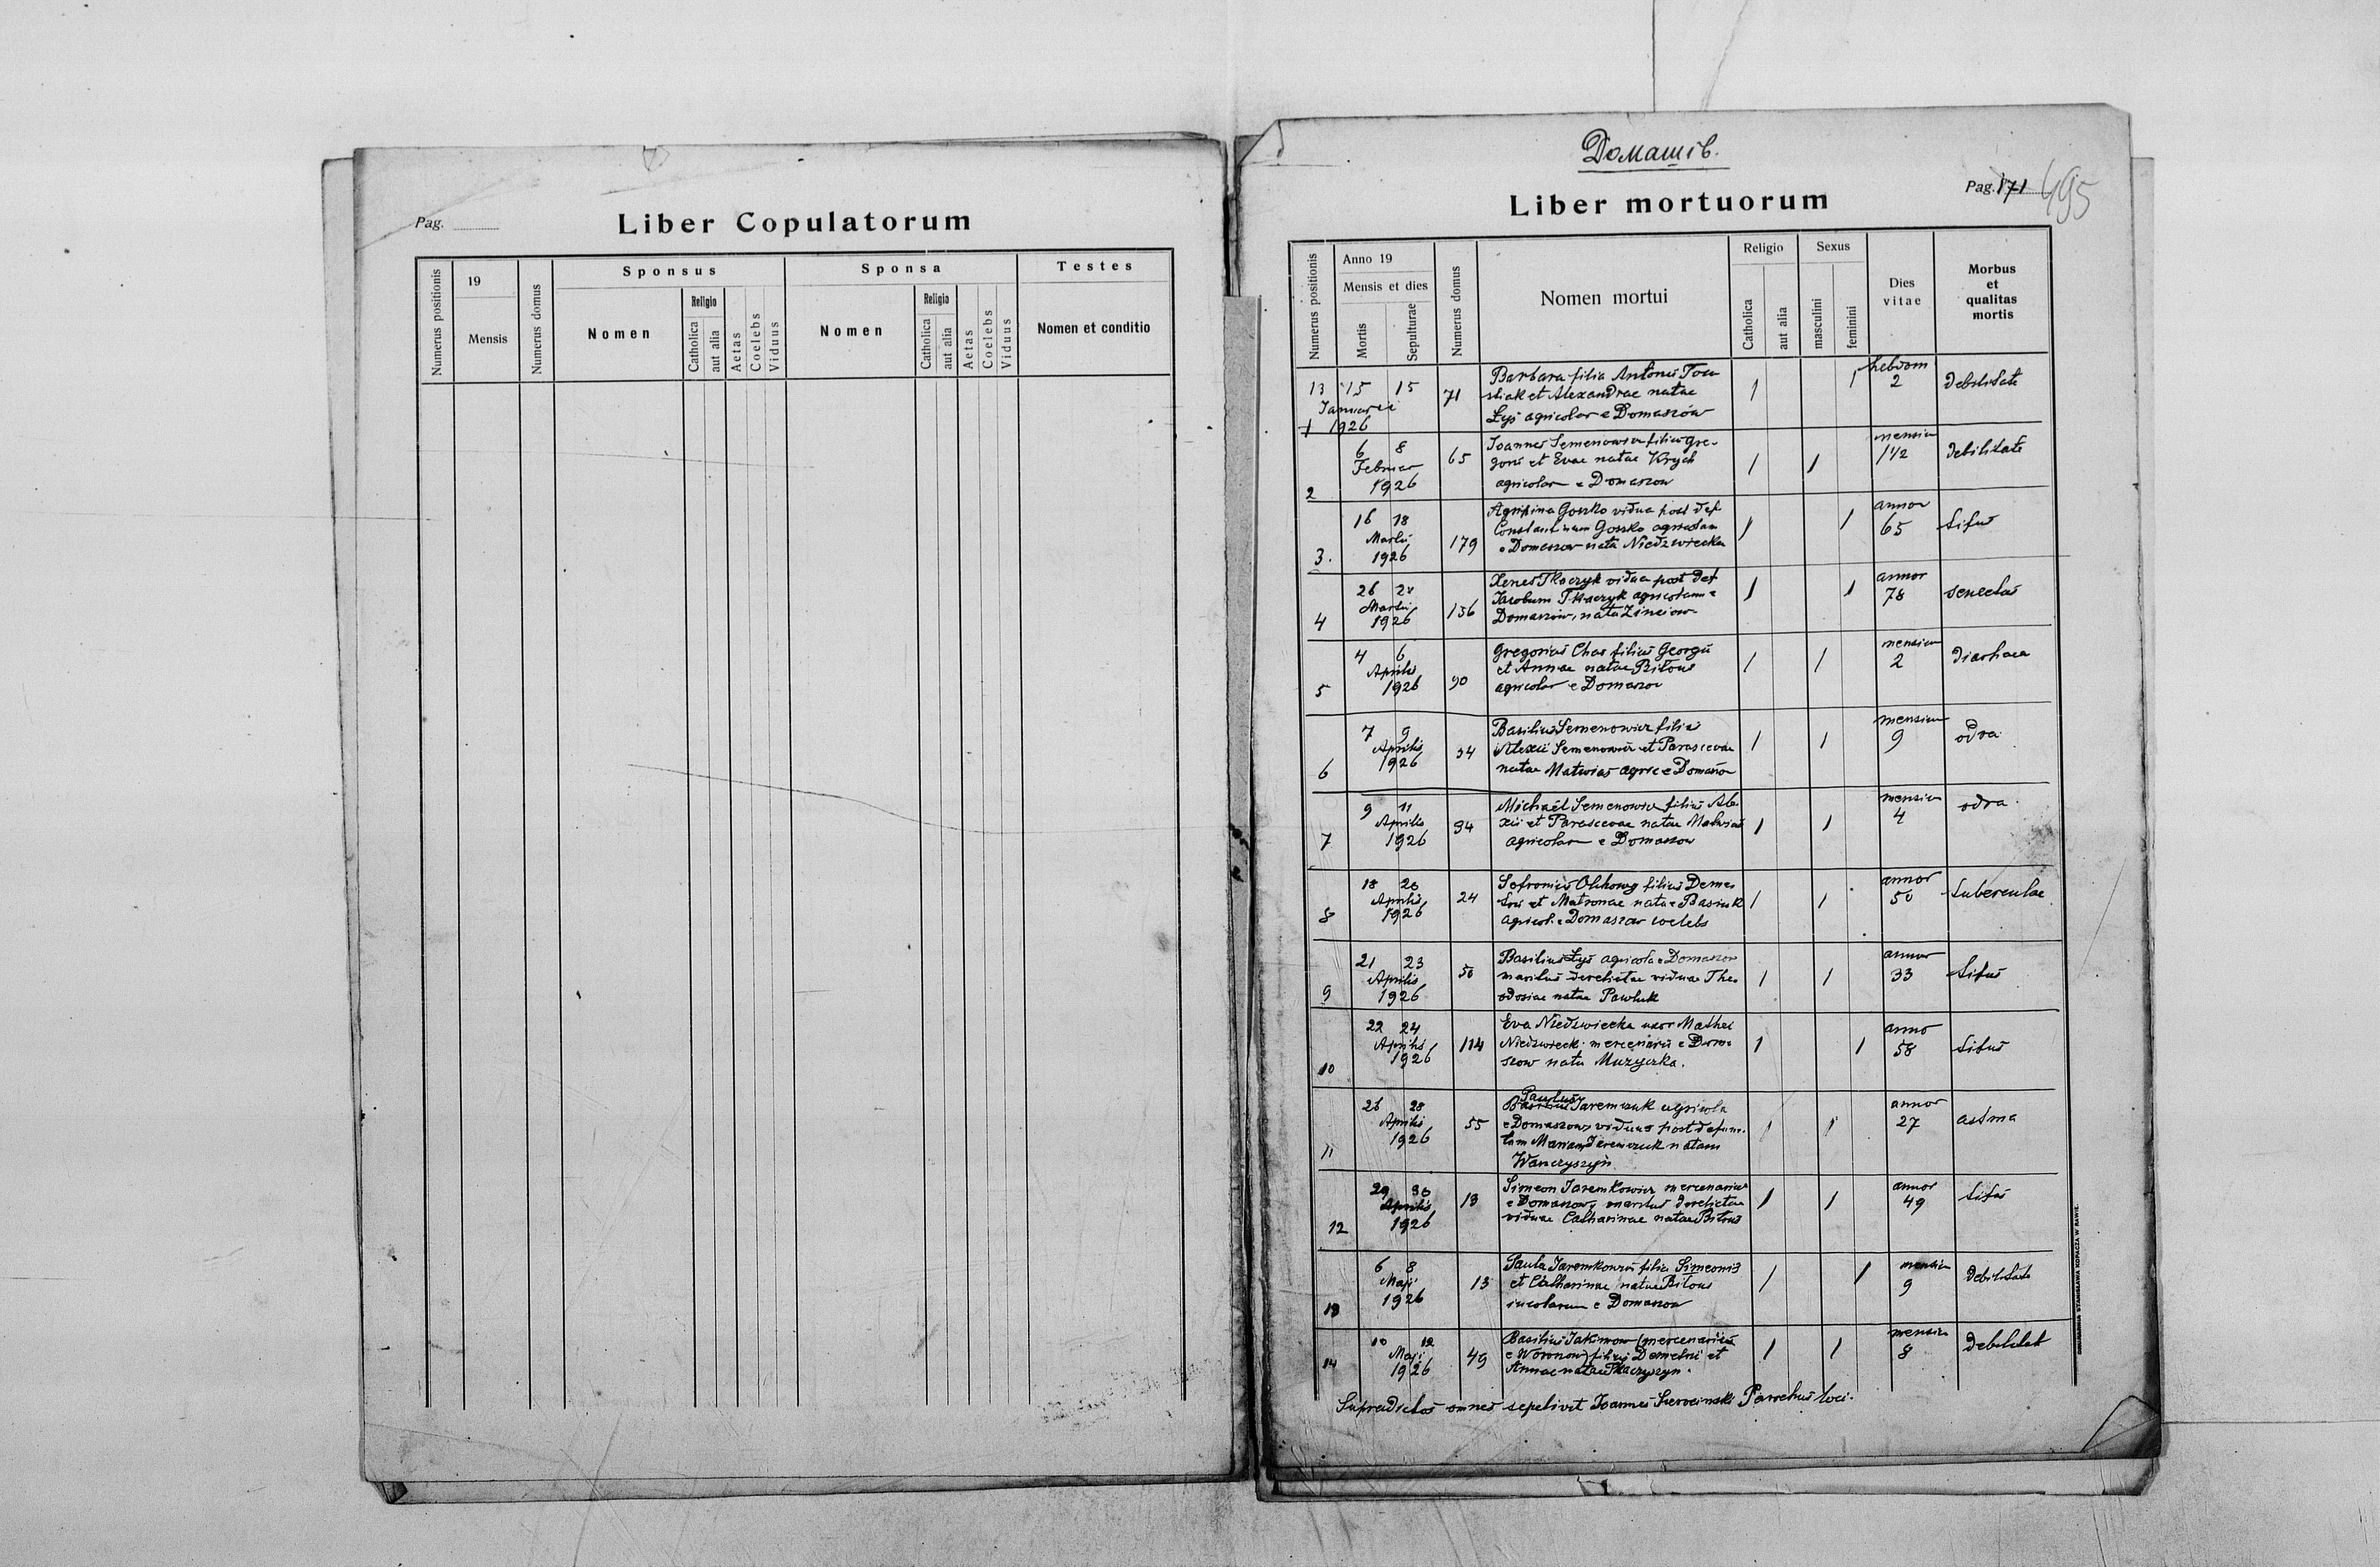 Pag.
Liber Copulatorum
Numerus positionis
19
Mensis
Numerus domus
Sponsus
Nomen
Religio
Catholica
aut alia
Aetas
Coelebs
Vidus
Sponsa
Nomen
Religio
Catholica
aut alia
Aetas
Coelebs
Vidus
Testes
Nomen et conditio
Домашів.
Pag. 171
495
Liber mortuorum
Numerus positionis
Anno 19
Mensis et dies
Mortis
Sepulturae
Numerus domus
Nomen mortui
Religio
Catholica
aut alia
Sexus
masculini
feminini
Dies
vitae
Morbus
et
qualitas
mortis
13 15 15
Januarii
1 1926
71
Barbara filia Antonii
et Alexandrae natae
Łyś agricolar e Domaszów
hebdom
2
debilitate
2
6 8
Februar
1926
65
Joannes Semenowicz filius Gre-
gorii et Evae natae Krych
agricolar e Domaszow
mensium
1 1/2
debilitate
3.
16 18
Martii
1926
179
Agripina Goszko vidua post def
Constantinum Goszko agricolam
e Domaszow nata Niedzwiecka
annor
65
tifus
4
26 28
Martii
1926
136
Xenes Tkaczyk vidua post def
Jacobum Tkaczyk agricolam e
Domaszów, nata Zinciow
annor
78
senectus
5
4 6
Aprilis
1926
90
Gregorius Chas filius Georgii
et Annae natae Biłous
agricolar e Domaszow
mensium
2
diarhaea
6
7 9
Aprilis
1926
94
Basilius Semenowicz filius
Alexii Semenowicz et Parascevae
natae Matwias agric e Domaszow
mensium
9
odra
7
9 11
Aprilis
1926
94
Michaël Semenowicz filius Ale-
xii et Parascevae natae Matwias
agricolar e Domaszow
mensium
4
odra
8
18 20
Aprilis
1926
24
Sofronius Olchowy filius Deme-
trii et Matronae natae Basiuk
agricol. e Domaszow coelebs
annor
50
tuberculae
9
21 23
Aprilis
1926
50
Basilius Łyś agricola e Domaszow
maritus derelictae viduae The-
odosiae natae Pawluk
annor
33
tifus
10
22 24
Aprilis
1926
114
Eva Niedzwiecka uxor Mathei
Niedzwiecki mercenarii e Doma-
szow nata Muzyczka.
anno
58
tifus
11
26 28
Aprilis
1926
55
Paulus
Basilius Jaremczuk agricola
e Domaszow, viduus post defunc-
tam Mariam Jaremczuk natam
Wanczyszyn
annor
27
astma
12
29 30
Aprilis
1926
13
Simeon Jaremkowicz mercenarius
e Domaszow, maritus derelictae
viduae Catharinae natae Biłous
annor
49
tifus
13
6 8
Maji
1926
13
Paula Jaremkowicz filia Simeonis
et Catharinae natae Biłous
incolarum e Domaszow
mensium
9
debilitate
14
10 12
Maji
1926
49
Basilius Jakimow (mercenarius
e Woronow) filius Demetrii et
Annae natae Tkaczyszyn.
mensium
8
debilitat
Supradictos omnes sepelivit Joannes Parochus loci.
DRUKARNIA STANISŁAWA KOPACZA W RAWIE.